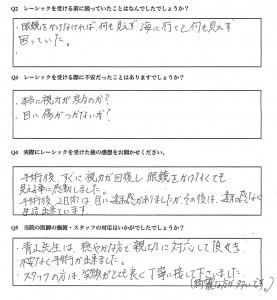 Q2 レーシックを受ける前に困っていたことはなんでしたでしょうか？
・眼鏡をかけなければ何も見えず 海に行くと何も見えず
困っていた。
Q3 レーシックを受ける際に不安だったことはありますでしょうか？
・本当に視力が戻るのか?
・目に傷がつかないか?
Q4 実際にレーシックを受けた後の感想をお聞かせください。
手術後、すぐに視力が回復し 眼鏡をかけなくても
見える事に感動しました。
手術後 2日間は目に違和感がありましたが、その後は、違和感なく
生活出来ています。
Q5 当院の医師の施術・スタッフの対応はいかがでしたでしょうか？
・先生は、穏やかな方で親切に対応して頂き、
不安なく手術が出来ました。
・スタッフの方は、笑顔がとても良く丁寧に接して下さいました。
(綺麗な方が多いです。)